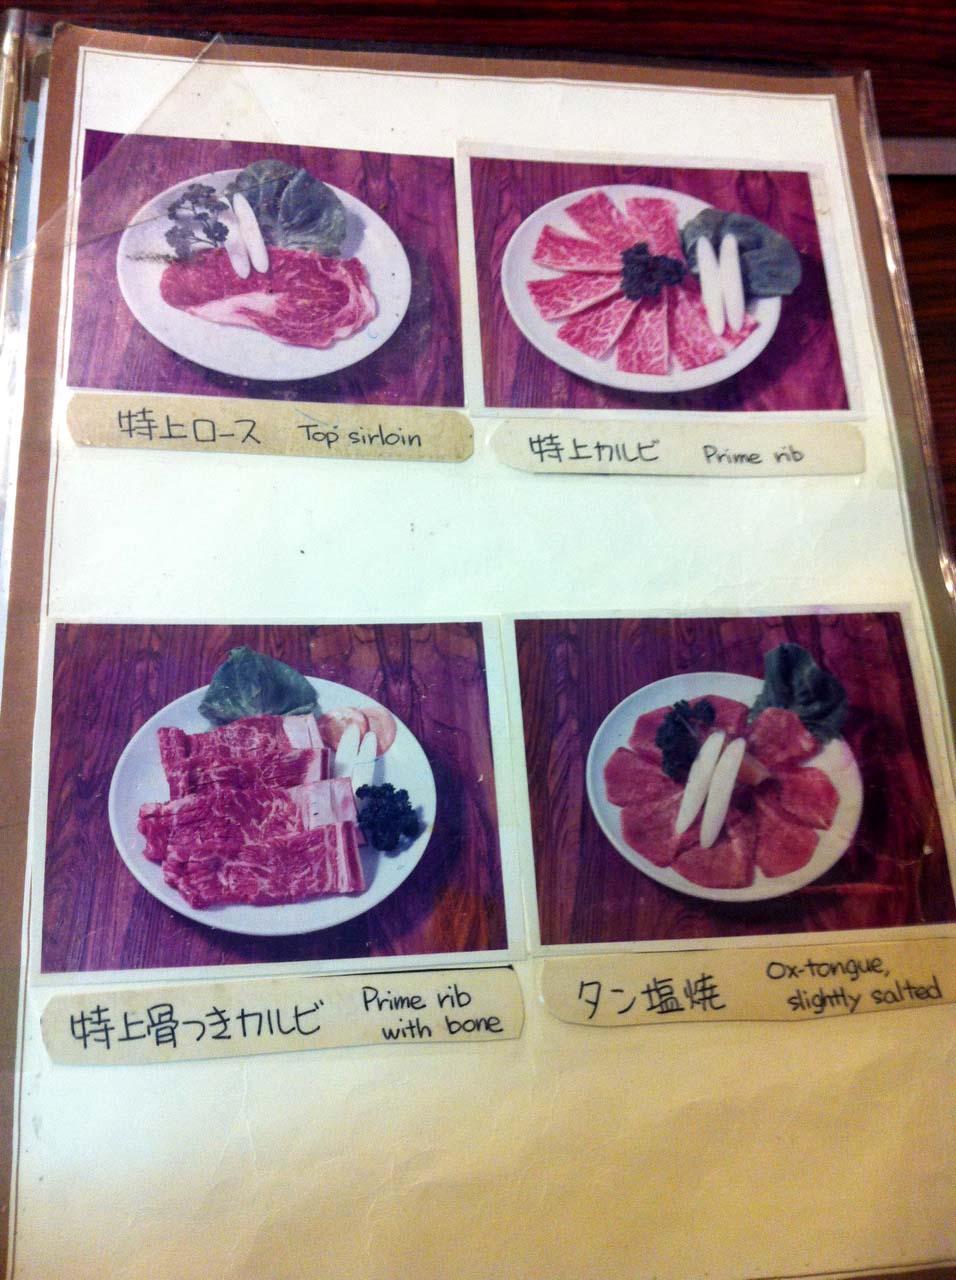 特上ロース Top sirloin
特上カルビ Prime rib
特上骨つきカルビ Prime rib
with bone
タン塩焼 Ox-tongue,
slightly salted